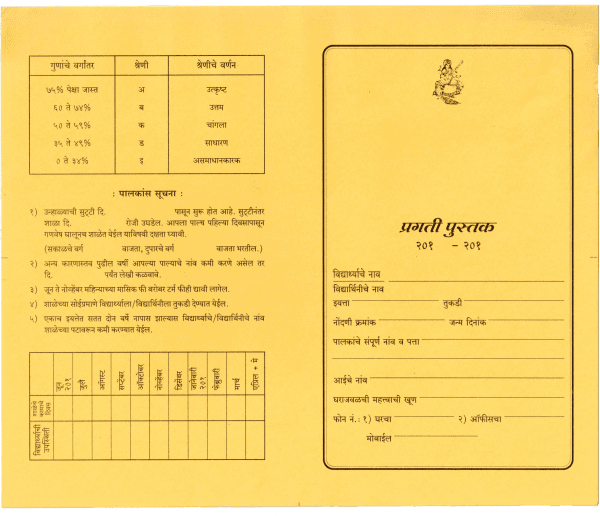 गुणांचे वर्गांतर श्रेणी श्रेणीचे वर्णन
७५% पेक्षा जास्त अ उत्कृष्ट
६० ते ७४% ब उत्तम
५० ते ५९% क चांगला
३५ ते ४९% ड साधारण
० ते ३४% इ असमाधानकारक
: पालकांस सूचना :
१) उन्हाळ्याची सुट्टी दि. पासून सुरू होत आहे. सुट्टीनंतर
शाळा दि. रोजी उघडेल. आपला पाल्य पहिल्या दिवसापासून
गणवेष घालूनच शाळेत येईल याविषयी दक्षता घ्यावी.
(सकाळचे वर्ग वाजता, दुपारचे वर्ग वाजता भरतील.)
२) अन्य कारणास्तव पुढील वर्षी आपल्या पाल्याचे नांव कमी करणे असेल तर
दि. पर्यंत लेखी कळवावे.
३) जून ते नोव्हेंबर महिन्याच्या मासिक फी बरोबर टर्म फीही द्यावी लागेल.
४) शाळेच्या सोईप्रमाणे विद्यार्थ्याला/विद्यार्थिनीला तुकडी देण्यात येईल.
५) एकाच इयत्तेत सतत दोन वर्षे नापास झाल्यास विद्यार्थ्याचे/विद्यार्थिनीचे नांव
शाळेच्या पटावरून कमी करण्यात येईल.
जून २०१ जुलै ऑगस्ट सप्टेंबर ऑक्टोबर नोव्हेंबर डिसेंबर जानेवारी २०१ फेब्रुवारी मार्च एप्रिल + मे
शाळेचे कामाचे दिवस
विद्यार्थ्यांची उपस्थिती
प्रगती पुस्तक
२०१ - २०१
विद्यार्थ्याचे नाव
विद्यार्थिनीचे नाव
इयत्ता तुकडी
नोंदणी क्रमांक जन्म दिनांक
पालकांचे संपूर्ण नांव व पत्ता
आईचे नांव
घराजवळची महत्त्वाची खूण
फोन नं. : १) घरचा २) ऑफीसचा
मोबाईल